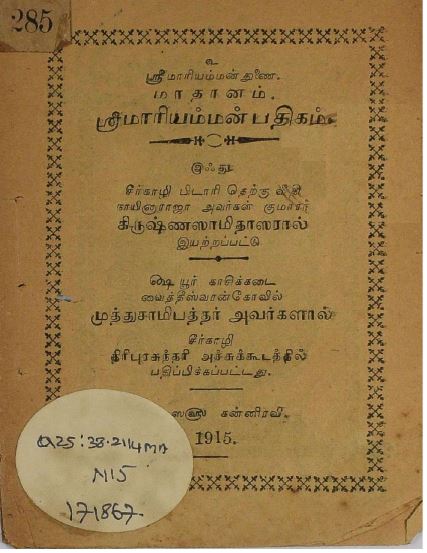 285
உ
ஸ்ரீமாரியம்மன் துணை.
மாதானம்.
ஸ்ரீமாரியம்மன் பதிகம்.
இஃது
சீர்காழி பிடாரி தெற்கு வீதி
நாயினாராஜா அவர்கள் குமாரர்
கிருஷ்ணஸாமிதாஸரால்
இயற்றப்பட்டு
ஷை யூர் காசிக்கடை
வைத்தீஸ்வான்கோவில்
முத்துசாமிபத்தர் அவர்களால்
சீர்காழி
திரிபுரசுந்தரி அச்சுக்கூடத்தில்
பதிப்பிக்கப்பட்டது.
கன்னிரவி.
1915.
Q25:38.2114
N15
171867